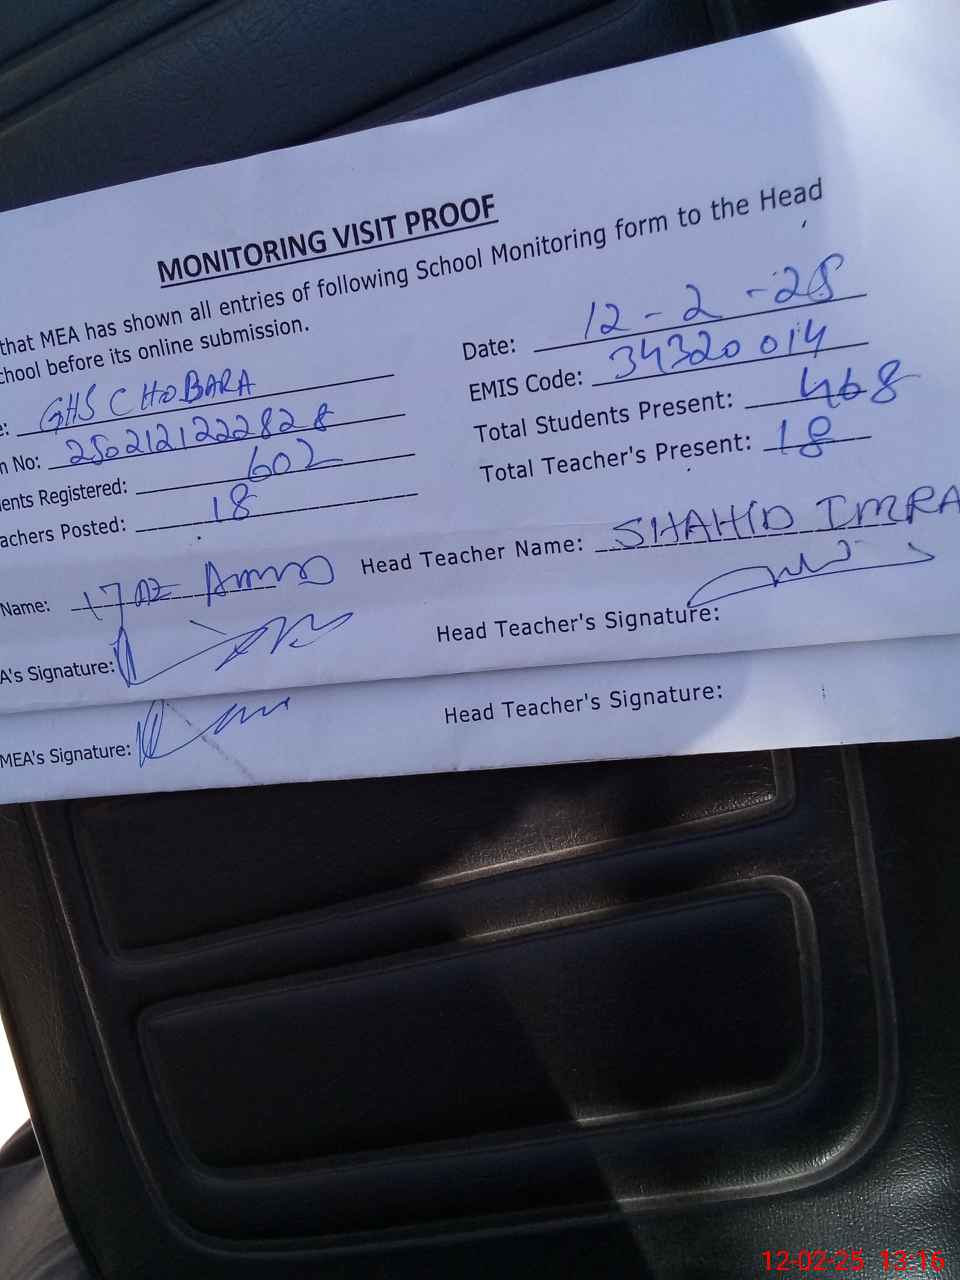 MONITORING VISIT PROOF
that MEA has shown all entries of following School Monitoring form to the Head
chool before its online submission.
e: GHS CHOBARA Date: 12-2-25
n No: 2502121222828 EMIS Code: 34320014
ents Registered: 602 Total Students Present: 468
achers Posted: 18 Total Teacher's Present: 18
Name: Head Teacher Name: SHAHID IMRA
A's Signature: Head Teacher's Signature:
MEA's Signature: Head Teacher's Signature:
12-02-25 13:16